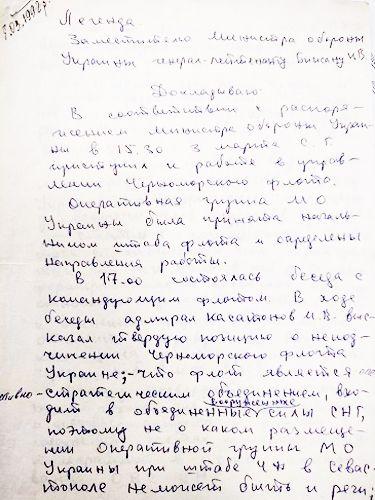 7.03.1992 г.
Легенда
Заместителю Министра обороны
Украины генерал-лейтенанту Бижану И В
Докладываю:
В соответствии с распоря-
жением Министра обороны Украи-
ны в 15.30 3 марта с. г.
приступил к работе в управ-
лении Черноморского флота.
Оперативная группа МО
Украины была принята началь-
ником штаба флота и определены
направления работы.
В 17.00 состоялась беседа с
командующим флотом. В ходе
беседы адмирал Касатонов И.В. выс-
казал твёрдую позицию о непод-
чинении Черноморского флота
Украине; что флот является опе-
ративно-стратегическим объединением, вхо-
вооруженные
дит в объединенные силы СНГ,
поэтому не о каком размеще-
нии Оперативной группы МО
Украины при штабе ЧФ в Севас-
тополе не может быть и речи;